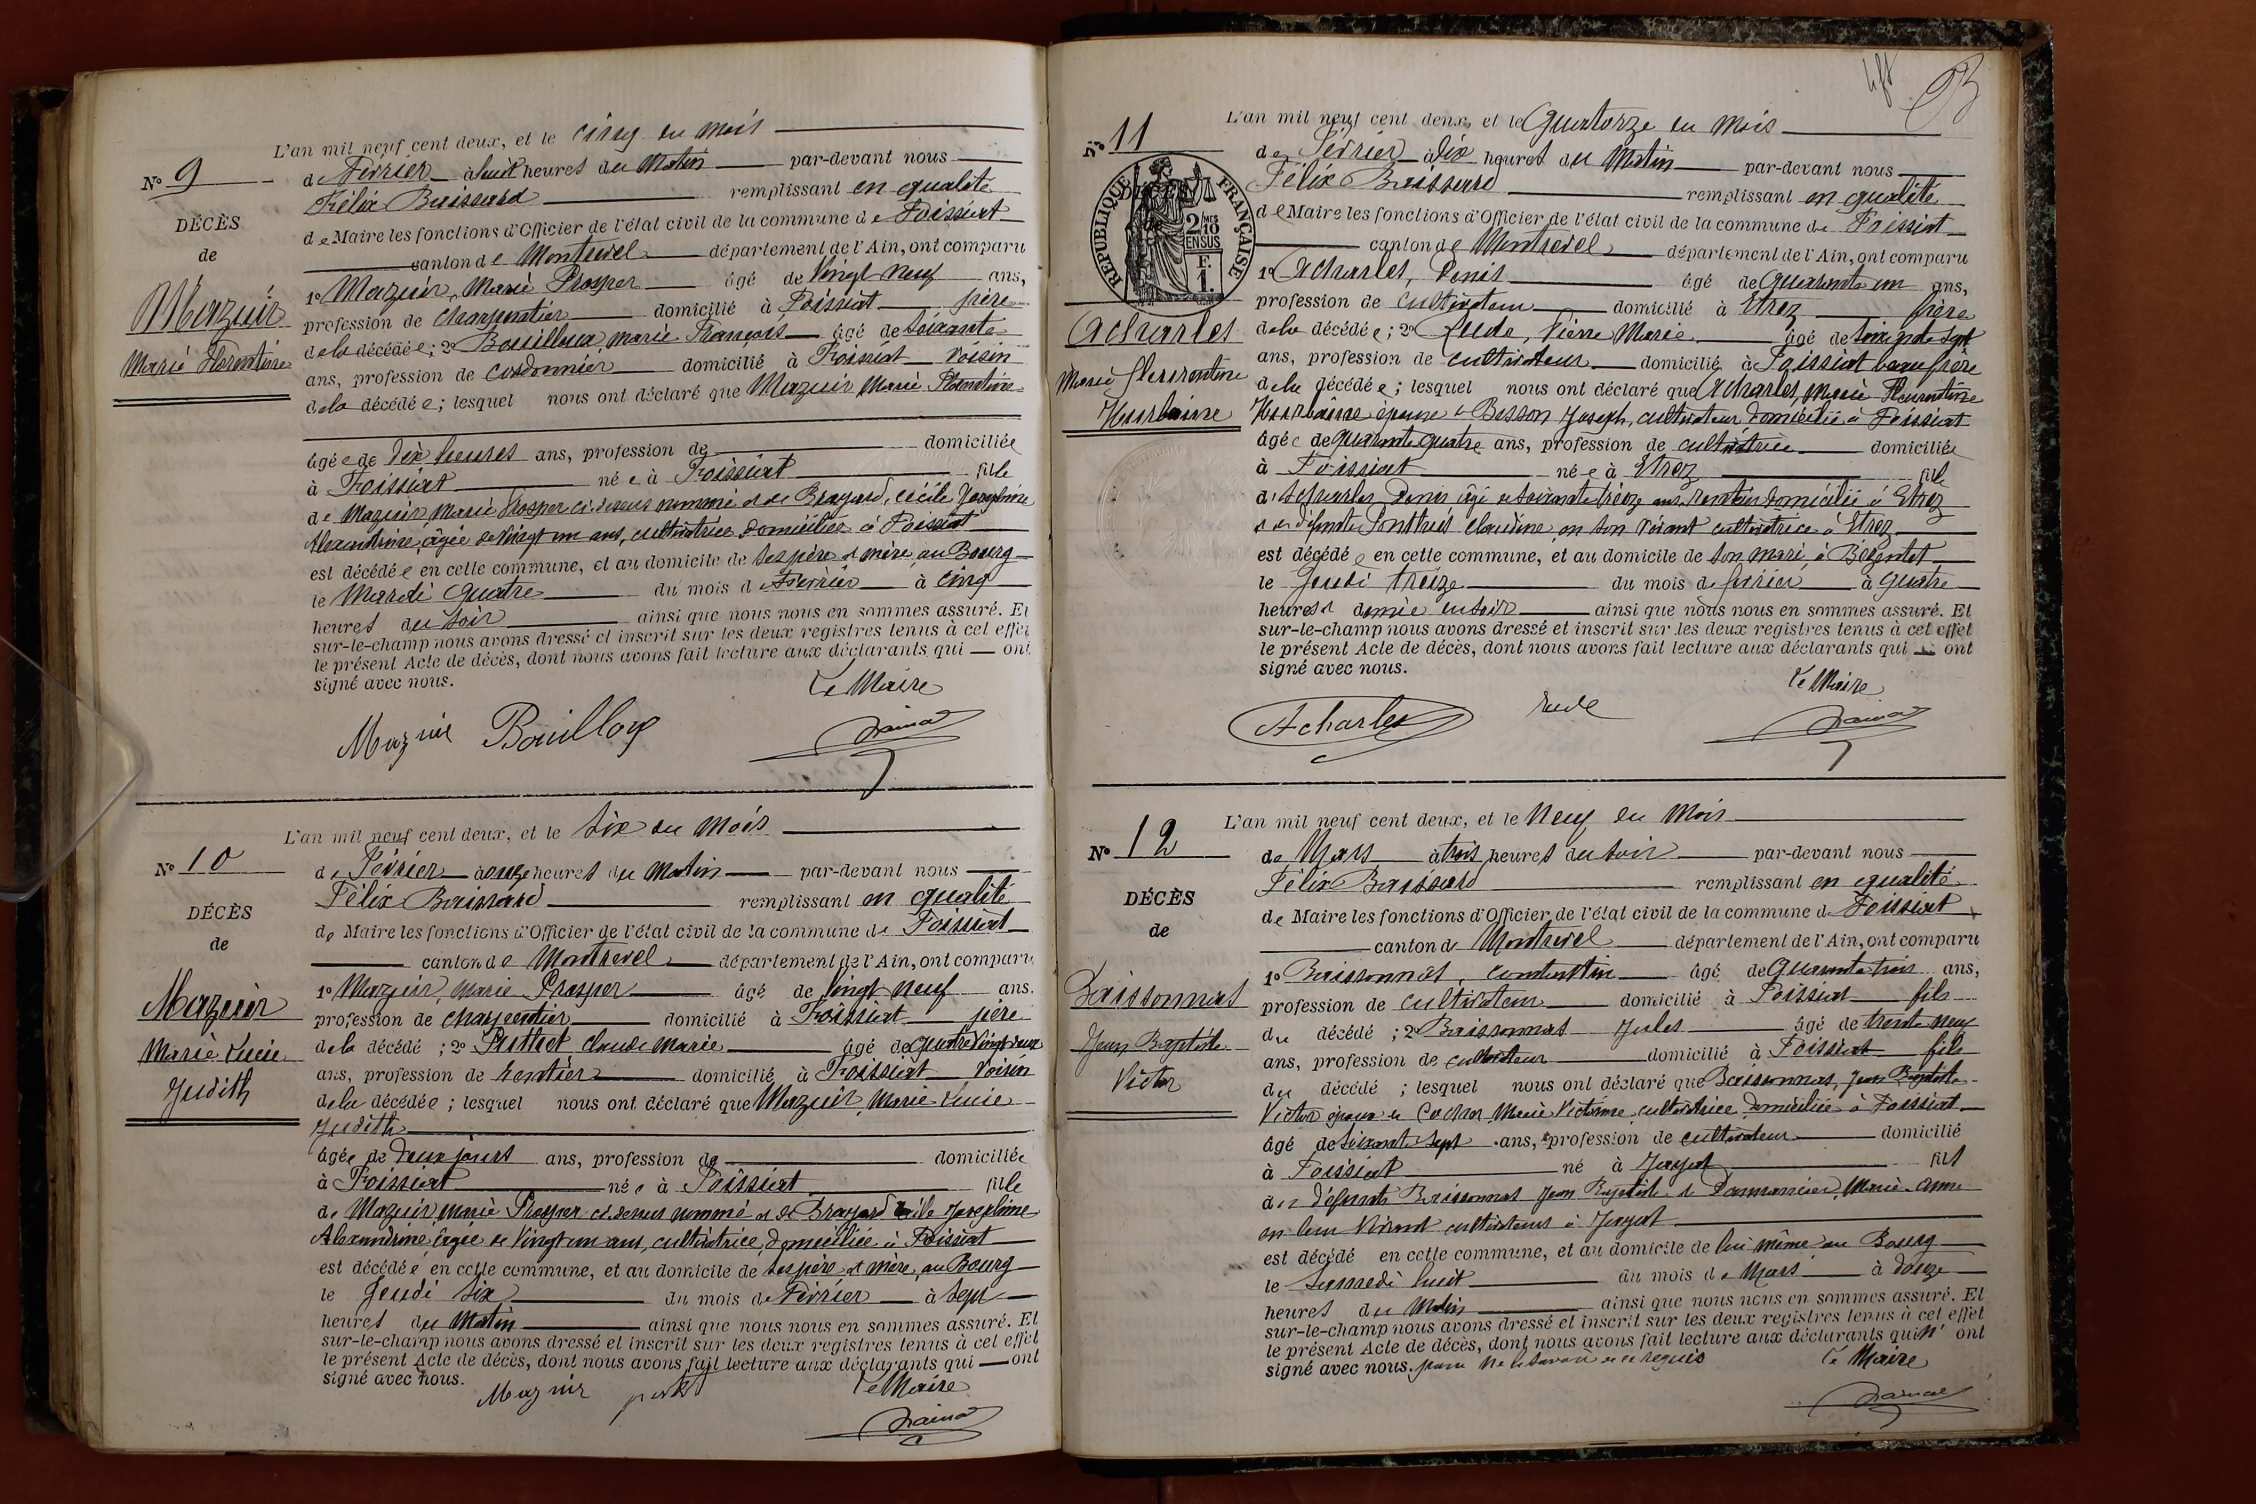 N° 9
DÉCÈS
de
Mazuir
Marie Florentine
L'an mil neuf cent deux, et le cinq du mois
de Février à huit heures du Matin par-devant nous
Félix Buissard remplissant en qualité
de Maire les fonctions d'Officier de l'état civil de la commune de Foissiat
canton de Montrevel département de l'Ain, ont comparu
1° Mazuir, Marie Prosper âgé de Vingt neuf ans,
profession de charpentier domicilié à Foissiat père
de la décédée; 2° Bouilloux marie François âgé de soixante
ans, profession de cordonnier domicilié à Foissiat voisin
de la décédée; lesquel nous ont déclaré que Mazuir Marie Florentine
âgée de dix heures ans, profession de domiciliée
à Foissiat née à Foissiat fille
de Mazuir Marie Prosper ci-dessus nommé et de Brayard, cécile Josephine
Alexandrine, âgée de vingt un ans, cultivatrice domiciliée à Foissiat
est décédée en cette commune, et au domicile de ses père et mère, au Bourg
le Mardi quatre du mois de Février à cinq
heures du soir ainsi que nous nous en sommes assuré. Et
sur-le-champ nous avons dressé et inscrit sur les deux registres tenus à cet effet
le présent Acte de décès, dont nous avons fait lecture aux déclarants qui ont
signé avec nous. Le Maire
Mazuir Bouilloux
N° 10
DÉCÈS
de
Mazuir
Marie Lucie
Judith
L'an mil neuf cent deux, et le six du mois
de Février à onze heures du matin par-devant nous
Félix Buissard remplissant en qualité
de Maire les fonctions d'Officier de l'état civil de la commune de Foissiat
canton de Montrevel département de l'Ain, ont comparu
1° Mazuir, Marie Prosper âgé de Vingt neuf ans.
profession de charpentier domicilié à Foissiat père
de la décédé ; 2° claude Marie âgé de quatre vingt deux
ans, profession de rentier domicilié à Foissiat voisin
de la décédée ; lesquel nous ont déclaré que Mazuir, Marie Lucie
Judith
âgée de deux jours ans, profession de domiciliée
à Foissiat née à Foissiat fille
de Mazuir, Marie Prosper ci-dessus nommé et de Brayard cécile Josephine
Alexandrine âgée de vingt un ans, cultivatrice, domiciliée à Foissiat
est décédée en cette commune, et au domicile de ses père et mère, au Bourg
le Jeudi six du mois de Février à sept
heures du Matin ainsi que nous nous en sommes assuré. Et
sur-le-champ nous avons dressé et inscrit sur les deux registres tenus à cet effet
le présent Acte de décès, dont nous avons fait lecture aux déclarants qui ont
signé avec nous. Le Maire
Mazuir
N° 11
RÉPUBLIQUE FRANÇAISE
2 MES
10
EN SUS
F.
1.
de
Acharles
Marie Florentine
L'an mil neuf cent deux, et le Quatorze du mois
de Février à dix heures du Matin par-devant nous
Félix Buissard remplissant en qualité
de Maire les fonctions d'Officier de l'état civil de la commune de Foissiat
canton de Montrevel département de l'Ain, ont comparu
1° Acharles, Denis âgé de Quarante un ans,
profession de cultivateur domicilié à Etrez frère
de la décédée; 2° Rude, Pierre Marie âgé de sept
ans, profession de cultivateur domicilié à Foissiat beau frère
de la décédée; lesquel nous ont déclaré que Acharles, Marie Florentine
épouse de Besson Joseph, cultivateur domicilié à Foissiat
âgée de quarante quatre ans, profession de cultivatrice domiciliée
à Foissiat née à Etrez fille
d'Acharles Denis âgé de soixante treize ans rentier domicilié à Etrez
et de défunte claudine en son vivant cultivatrice à Etrez
est décédée en cette commune, et au domicile de son mari, à
le Jeudi treize du mois de février à quatre
heures et demie du soir ainsi que nous nous en sommes assuré. Et
sur-le-champ nous avons dressé et inscrit sur les deux registres tenus à cet effet
le présent Acte de décès, dont nous avons fait lecture aux déclarants qui ont
signé avec nous. Le Maire
Acharles Rude
N° 12
DÉCÈS
de
Buissonnat
Jean Baptiste
Victor
L'an mil neuf cent deux, et le Neuf du Mois
de Mars à trois heures du soir par-devant nous
Félix Buissard remplissant en qualité
de Maire les fonctions d'Officier de l'état civil de la commune de Foissiat
canton de Montrevel département de l'Ain, ont comparu
1° Buissonnat, constantin âgé de Quarante trois ans,
profession de cultivateur domicilié à Foissiat fils
du décédé ; 2° Buissonnat Jules âgé de trente neuf
ans, profession de cultivateur domicilié à Foissiat fils
du décédé ; lesquel nous ont déclaré que Buissonnat, Jean Baptiste
Victor époux de Marie Victorine cultivatrice domiciliée à Foissiat
âgé de soixante sept ans, profession de cultivateur domicilié
à Foissiat né à Jayat fils
des défunts Buissonnat Jean Baptiste et Marie Anne
en leur vivant cultivateurs à Jayat
est décédé en cette commune, et au domicile de lui même au Bourg
le samedi huit du mois de Mars à douze
heures du Matin ainsi que nous nous en sommes assuré. Et
sur-le-champ nous avons dressé et inscrit sur les deux registres tenus à cet effet
le présent Acte de décès, dont nous avons fait lecture aux déclarants qui n' ont
signé avec nous. pour ne le savoir de ce requis Le Maire